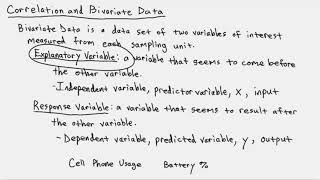 Correlation and Bivariate Data
Bivariate Data is a data set of two variables of interest
measured from each sampling unit.
Explanatory Variable: a variable that seems to come before
the other variable.
- Independent variable, predictor variable, x, input
Response Variable: a variable that seems to result after
the other variable.
- Dependent variable, predicted variable, y, output
Cell Phone Usage Battery %